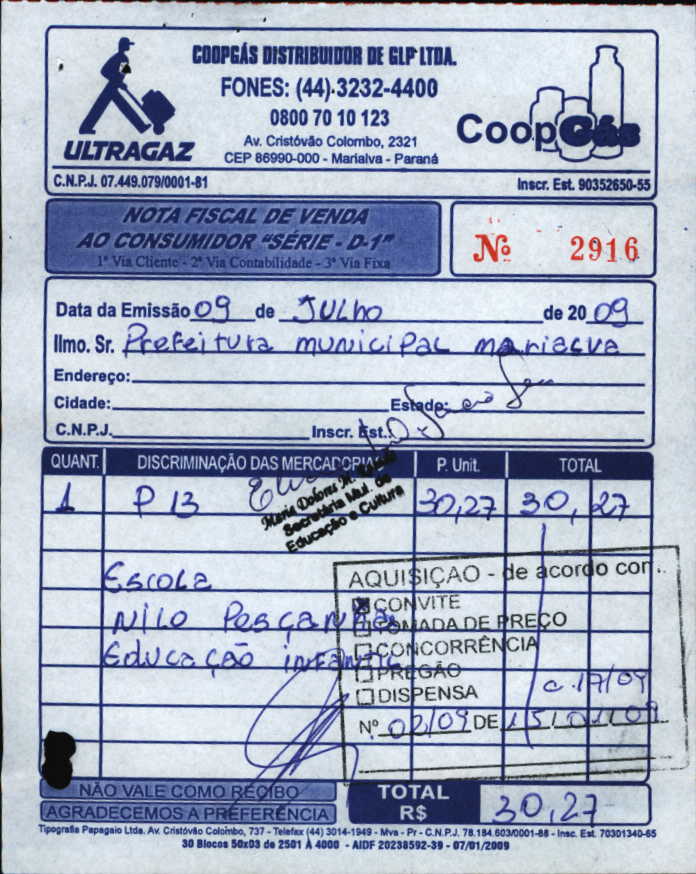 COOPGÁS DISTRIBUIDOR DE GLP LTDA.
FONES: (44) 3232-4400
0800 70 10 123
Av. Cristóvão Colombo, 2321
CEP 86990-000 - Marialva - Paraná
ULTRAGAZ
CoopGás
C.N.P.J. 07.449.079/0001-81
Inscr. Est. 90352650-55
NOTA FISCAL DE VENDA
AO CONSUMIDOR "SÉRIE - D-1"
1ª Via Cliente - 2ª Via Contabilidade - 3ª Via Fixa
Nº 2916
Data da Emissão 09 de JULHO de 20 09
Ilmo. Sr. Prefeitura municipal marialva
Endereço:
Cidade: Estado:
C.N.P.J. Inscr. Est.:
QUANT. DISCRIMINAÇÃO DAS MERCADORIAS P. Unit. TOTAL
1 P 13 30,27 30,27
Maria Dolores M.
Secretária Mul. de
Educação e Cultura
Escola
NILO PESÇANHA
Educação infantil
AQUISIÇÃO - de acordo com
CONVITE
TOMADA DE PREÇO
CONCORRÊNCIA
PREGÃO
DISPENSA
c.17/09
Nº 02/09 DE 15/01/09
NÃO VALE COMO RECIBO
AGRADECEMOS A PREFERÊNCIA
TOTAL
R$ 30,27
Tipografia Papagaio Ltda. Av. Cristóvão Colombo, 737 - Telefax (44) 3014-1949 - Mva - Pr - C.N.P.J. 78.184.603/0001-86 - Insc. Est. 70301340-65
30 Blocos 50x03 de 2501 À 4000 - AIDF 20238592-39 - 07/01/2009